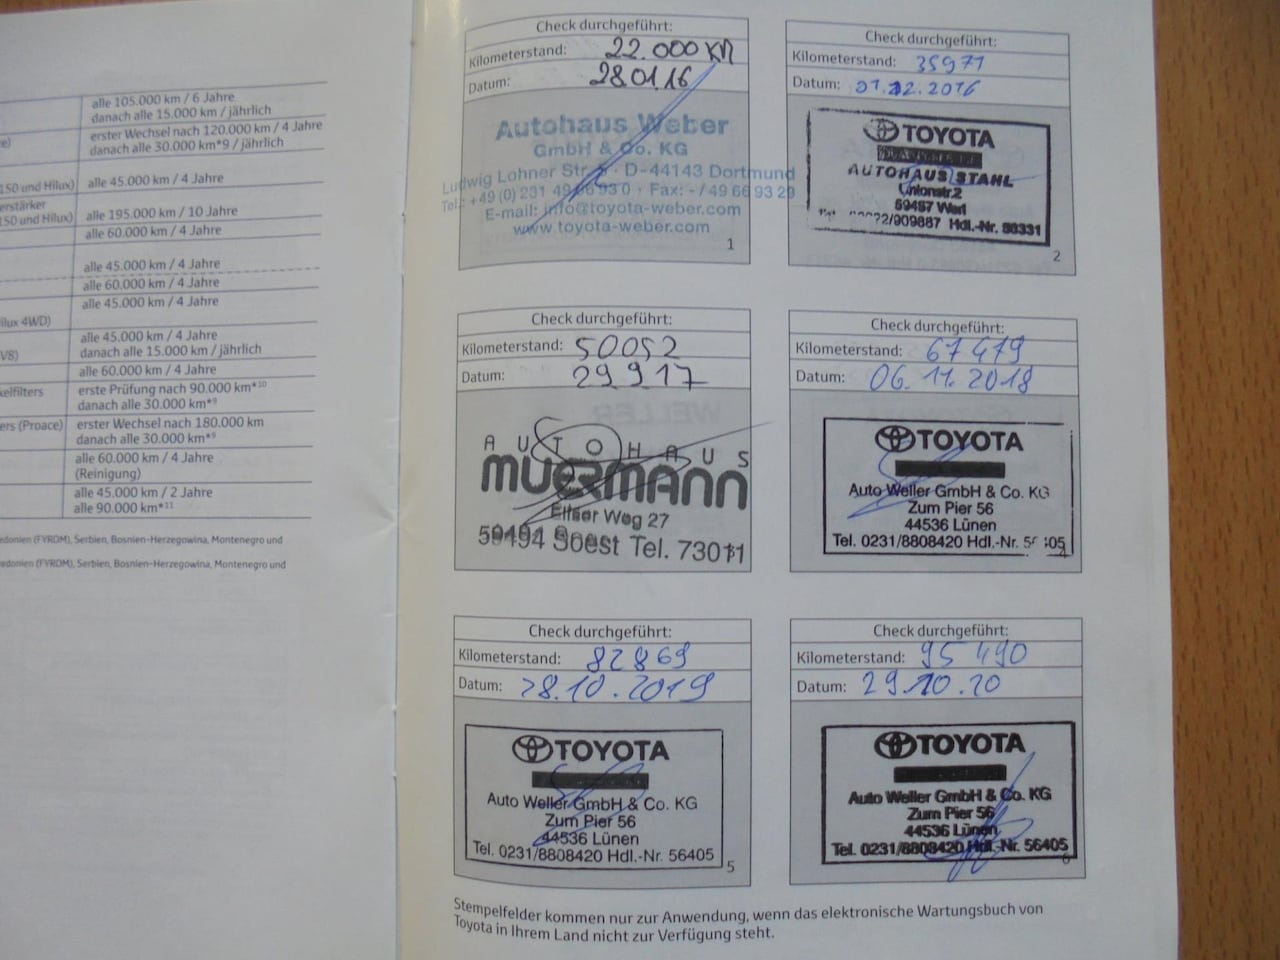 alle 105.000 km / 6 Jahre
danach alle 15.000 km / jährlich
erster Wechsel nach 120.000 km / 4 Jahre
danach alle 30.000 km*9 / jährlich
150 und Hilux) alle 45.000 km / 4 Jahre
erstärker
150 und Hilux) alle 195.000 km / 10 Jahre
alle 60.000 km / 4 Jahre
alle 45.000 km / 4 Jahre
alle 60.000 km / 4 Jahre
alle 45.000 km / 4 Jahre
ilux 4WD)
alle 45.000 km / 4 Jahre
V8) danach alle 15.000 km / jährlich
alle 60.000 km / 4 Jahre
kelfilters erste Prüfung nach 90.000 km*10
danach alle 30.000 km*9
ers (Proace) erster Wechsel nach 180.000 km
danach alle 30.000 km*9
alle 60.000 km / 4 Jahre
(Reinigung)
alle 45.000 km / 2 Jahre
alle 90.000 km*11
edonien (FYROM), Serbien, Bosnien-Herzegowina, Montenegro und
edonien (FYROM), Serbien, Bosnien-Herzegowina, Montenegro und
Check durchgeführt:
Kilometerstand: 22.000 KM
Datum: 28.01.16
Autohaus Weber
GmbH & Co. KG
Ludwig Lohner Str. · D-44143 Dortmund
Tel.: +49 (0) 231 49 66 93 0 · Fax: - / 49 66 93 29
E-mail: info@toyota-weber.com
www.toyota-weber.com
1
Check durchgeführt:
Kilometerstand: 35971
Datum: 2016
TOYOTA
AUTOHAUS STAHL
Unionstr.2
59457 Werl
/909887 Hdl.-Nr. 56331
2
Check durchgeführt:
Kilometerstand: 50052
Datum: 29 9 17
AUTOHAUS
MUERMANN
Weg 27
59494 Soest Tel. 73011
Check durchgeführt:
Kilometerstand: 67479
Datum: 06.11.2018
TOYOTA
Auto Weller GmbH & Co. KG
Zum Pier 56
44536 Lünen
Tel. 0231/8808420 Hdl.-Nr.
4
Check durchgeführt:
Kilometerstand: 82869
Datum: 28.10.2019
TOYOTA
Auto Weller GmbH & Co. KG
Zum Pier 56
44536 Lünen
Tel. 0231/8808420 Hdl.-Nr. 56405
5
Check durchgeführt:
Kilometerstand: 95490
Datum: 29.10.20
TOYOTA
Auto Weller GmbH & Co. KG
Zum Pier 56
44536 Lünen
Tel. 0231/8808420 Hdl.-Nr. 56405
6
Stempelfelder kommen nur zur Anwendung, wenn das elektronische Wartungsbuch von
Toyota in Ihrem Land nicht zur Verfügung steht.